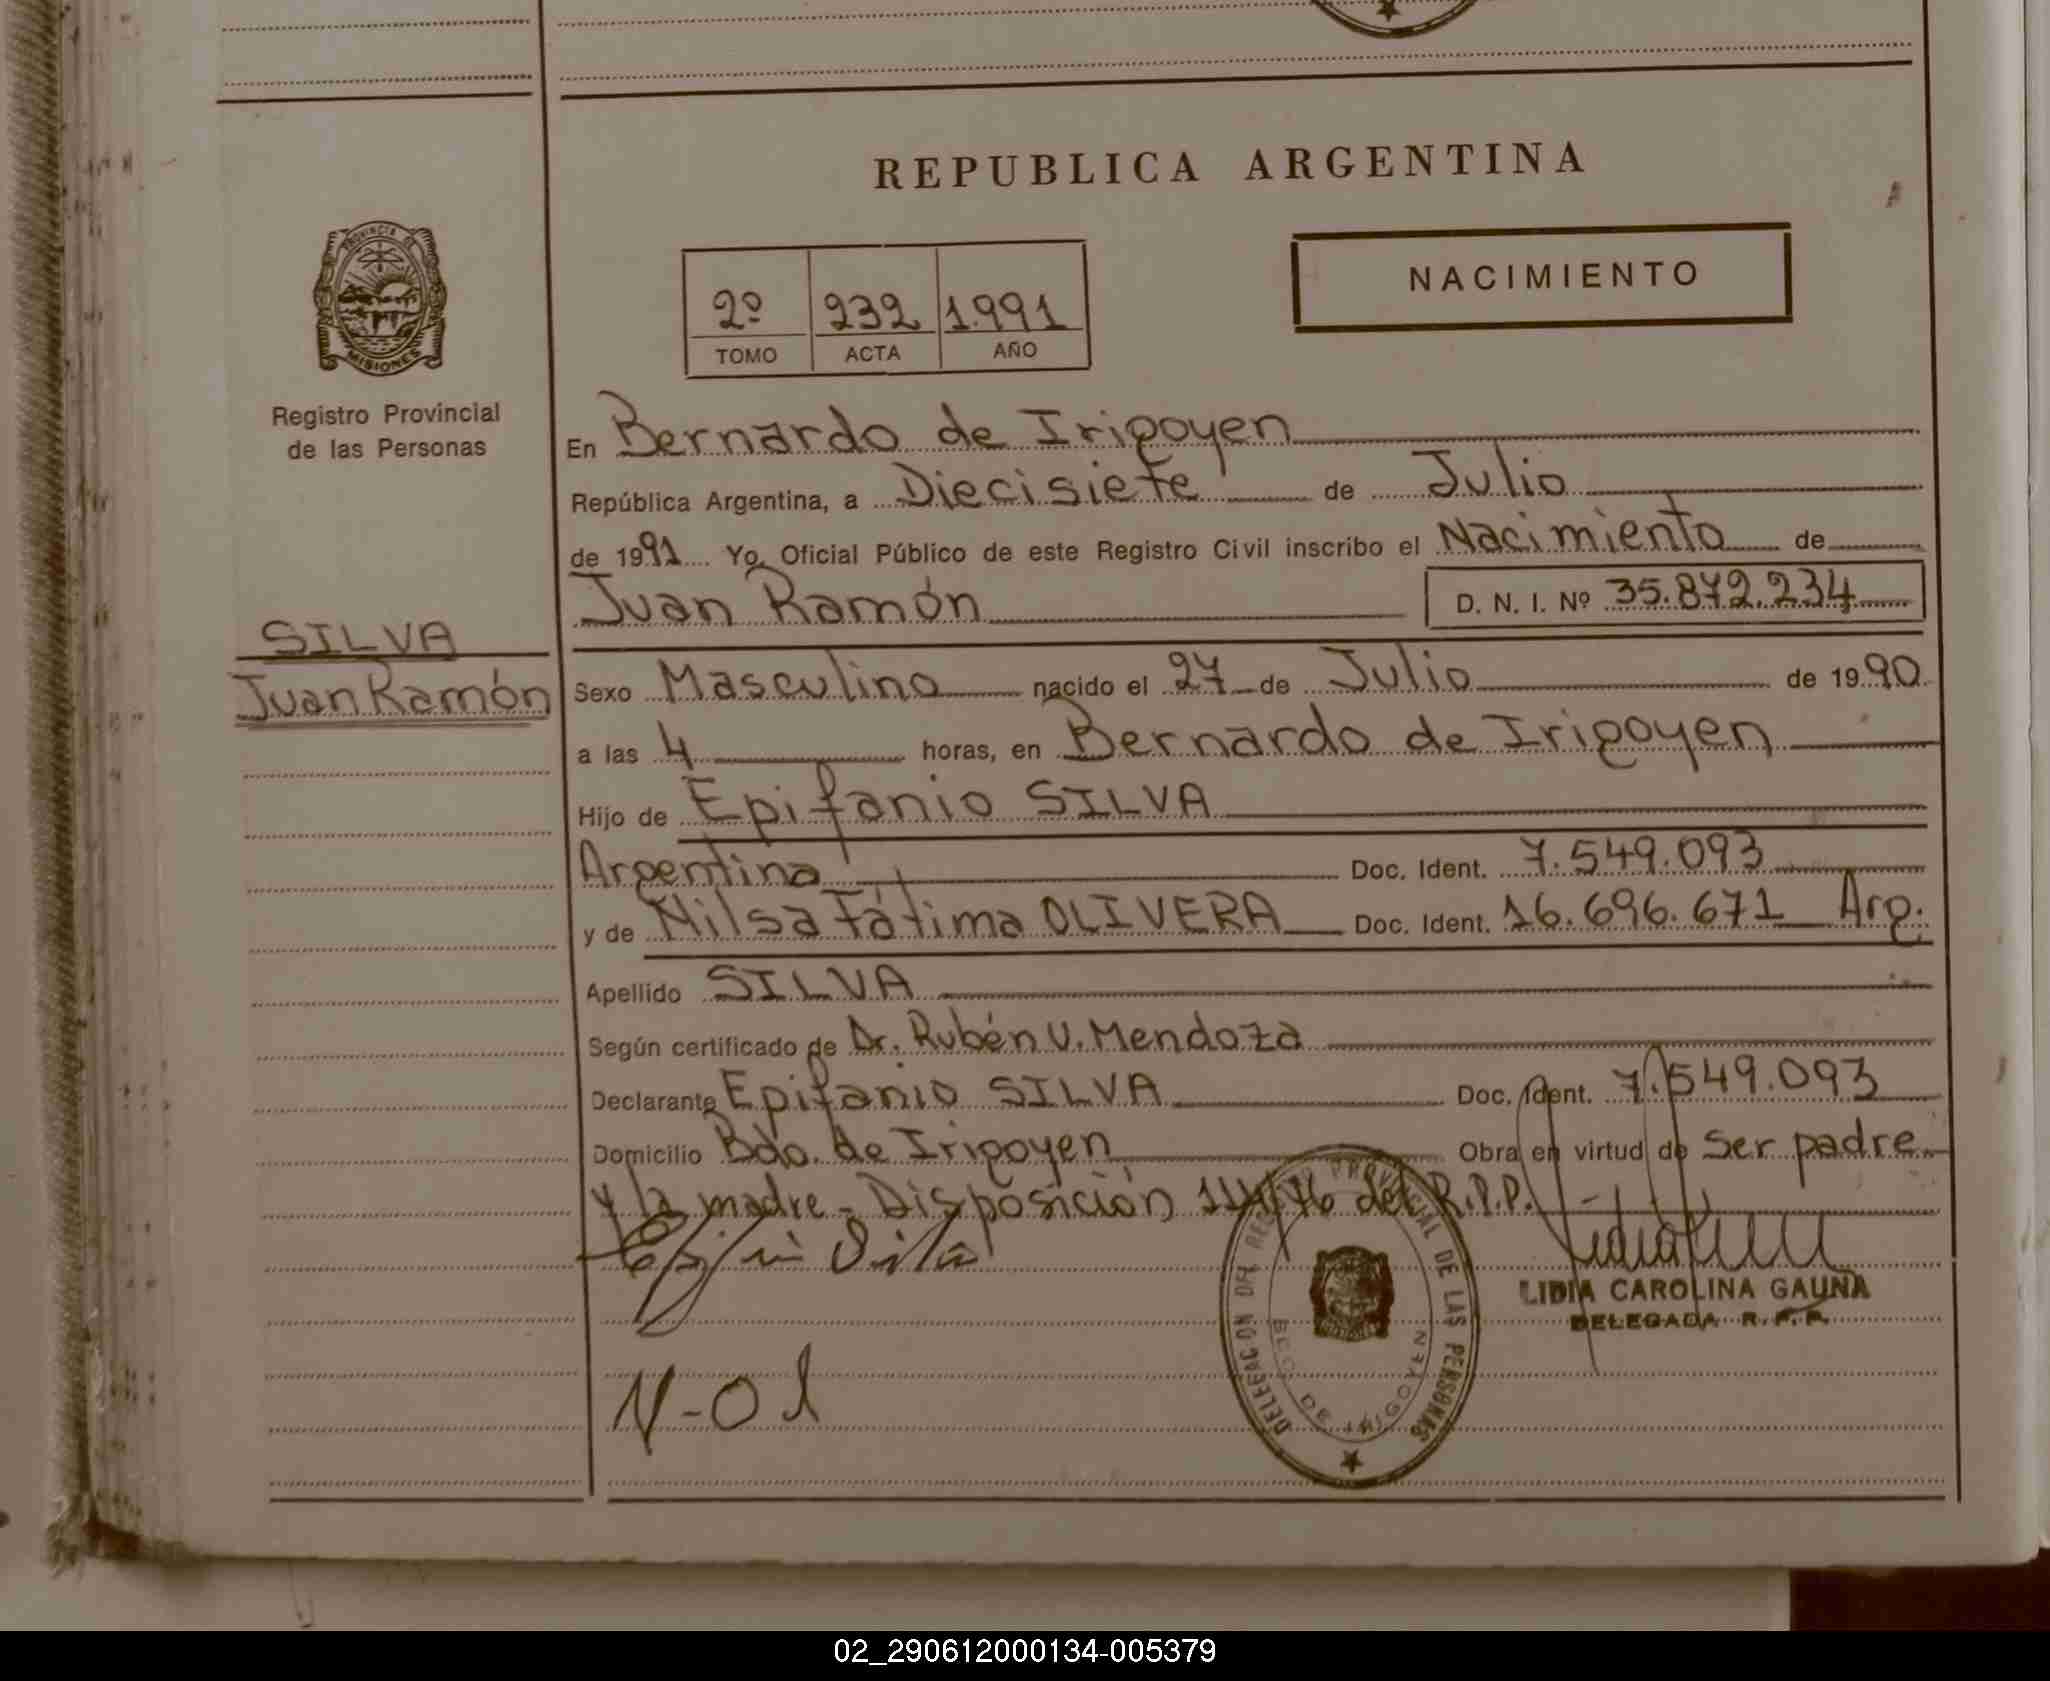 REPUBLICA ARGENTINA
PROVINCIA DE
MISIONES
Registro Provincial
de las Personas
SILVA
Juan Ramón
2º 232 1.991
TOMO ACTA AÑO
NACIMIENTO
En Bernardo de Irigoyen
República Argentina, a Diecisiete de Julio
de 1991 Yo, Oficial Público de este Registro Civil inscribo el Nacimiento de
Juan Ramón D. N. I. Nº 35.872.234
Sexo Masculino nacido el 27 de Julio de 1990
a las 4 horas, en Bernardo de Irigoyen
Hijo de Epifanio SILVA
Argentina Doc. Ident. 7.549.093
y de Nilsa Fátima OLIVERA Doc. Ident. 16.696.671 Arg.
Apellido SILVA
Según certificado de Dr. Rubén V. Mendoza
Declarante Epifanio SILVA Doc. Ident. 7.549.093
Domicilio Bdo. de Irigoyen Obra en virtud de ser padre
y la madre - Disposición del R.P.P.
DELEGACION DEL REGISTRO PROVINCIAL DE LAS PERSONAS
BDO. DE IRIGOYEN
LIDIA CAROLINA GAUNA
DELEGADA R. P. P.
N-O
02_290612000134-005379